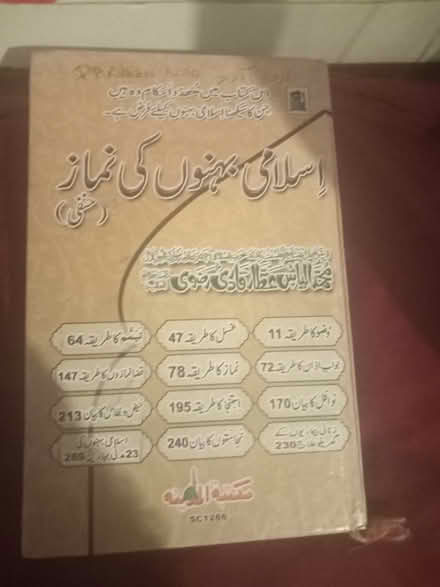 اس کتاب میں متعدد احکام وہ ہیں
جن کا سیکھنا اسلامی بہنوں کیلئے فرض ہے۔
اسلامی بہنوں کی نماز
(حنفی)
محمد الیاس عطار قادری رضوی
وضو کا طریقہ 11
غسل کا طریقہ 47
تیمم کا طریقہ 64
جواب اذان کا طریقہ 72
نماز کا طریقہ 78
قضا نمازوں کا طریقہ 147
نوافل کا بیان 170
استنجا کا طریقہ 195
حیض و نفاس کا بیان 213
زنانی بیماریوں کے
گھریلو علاج 230
نجاستوں کا بیان 240
اسلامی بہنوں کی
23 مدنی بہاریں 269
مکتبۃ المدینہ
SC1266